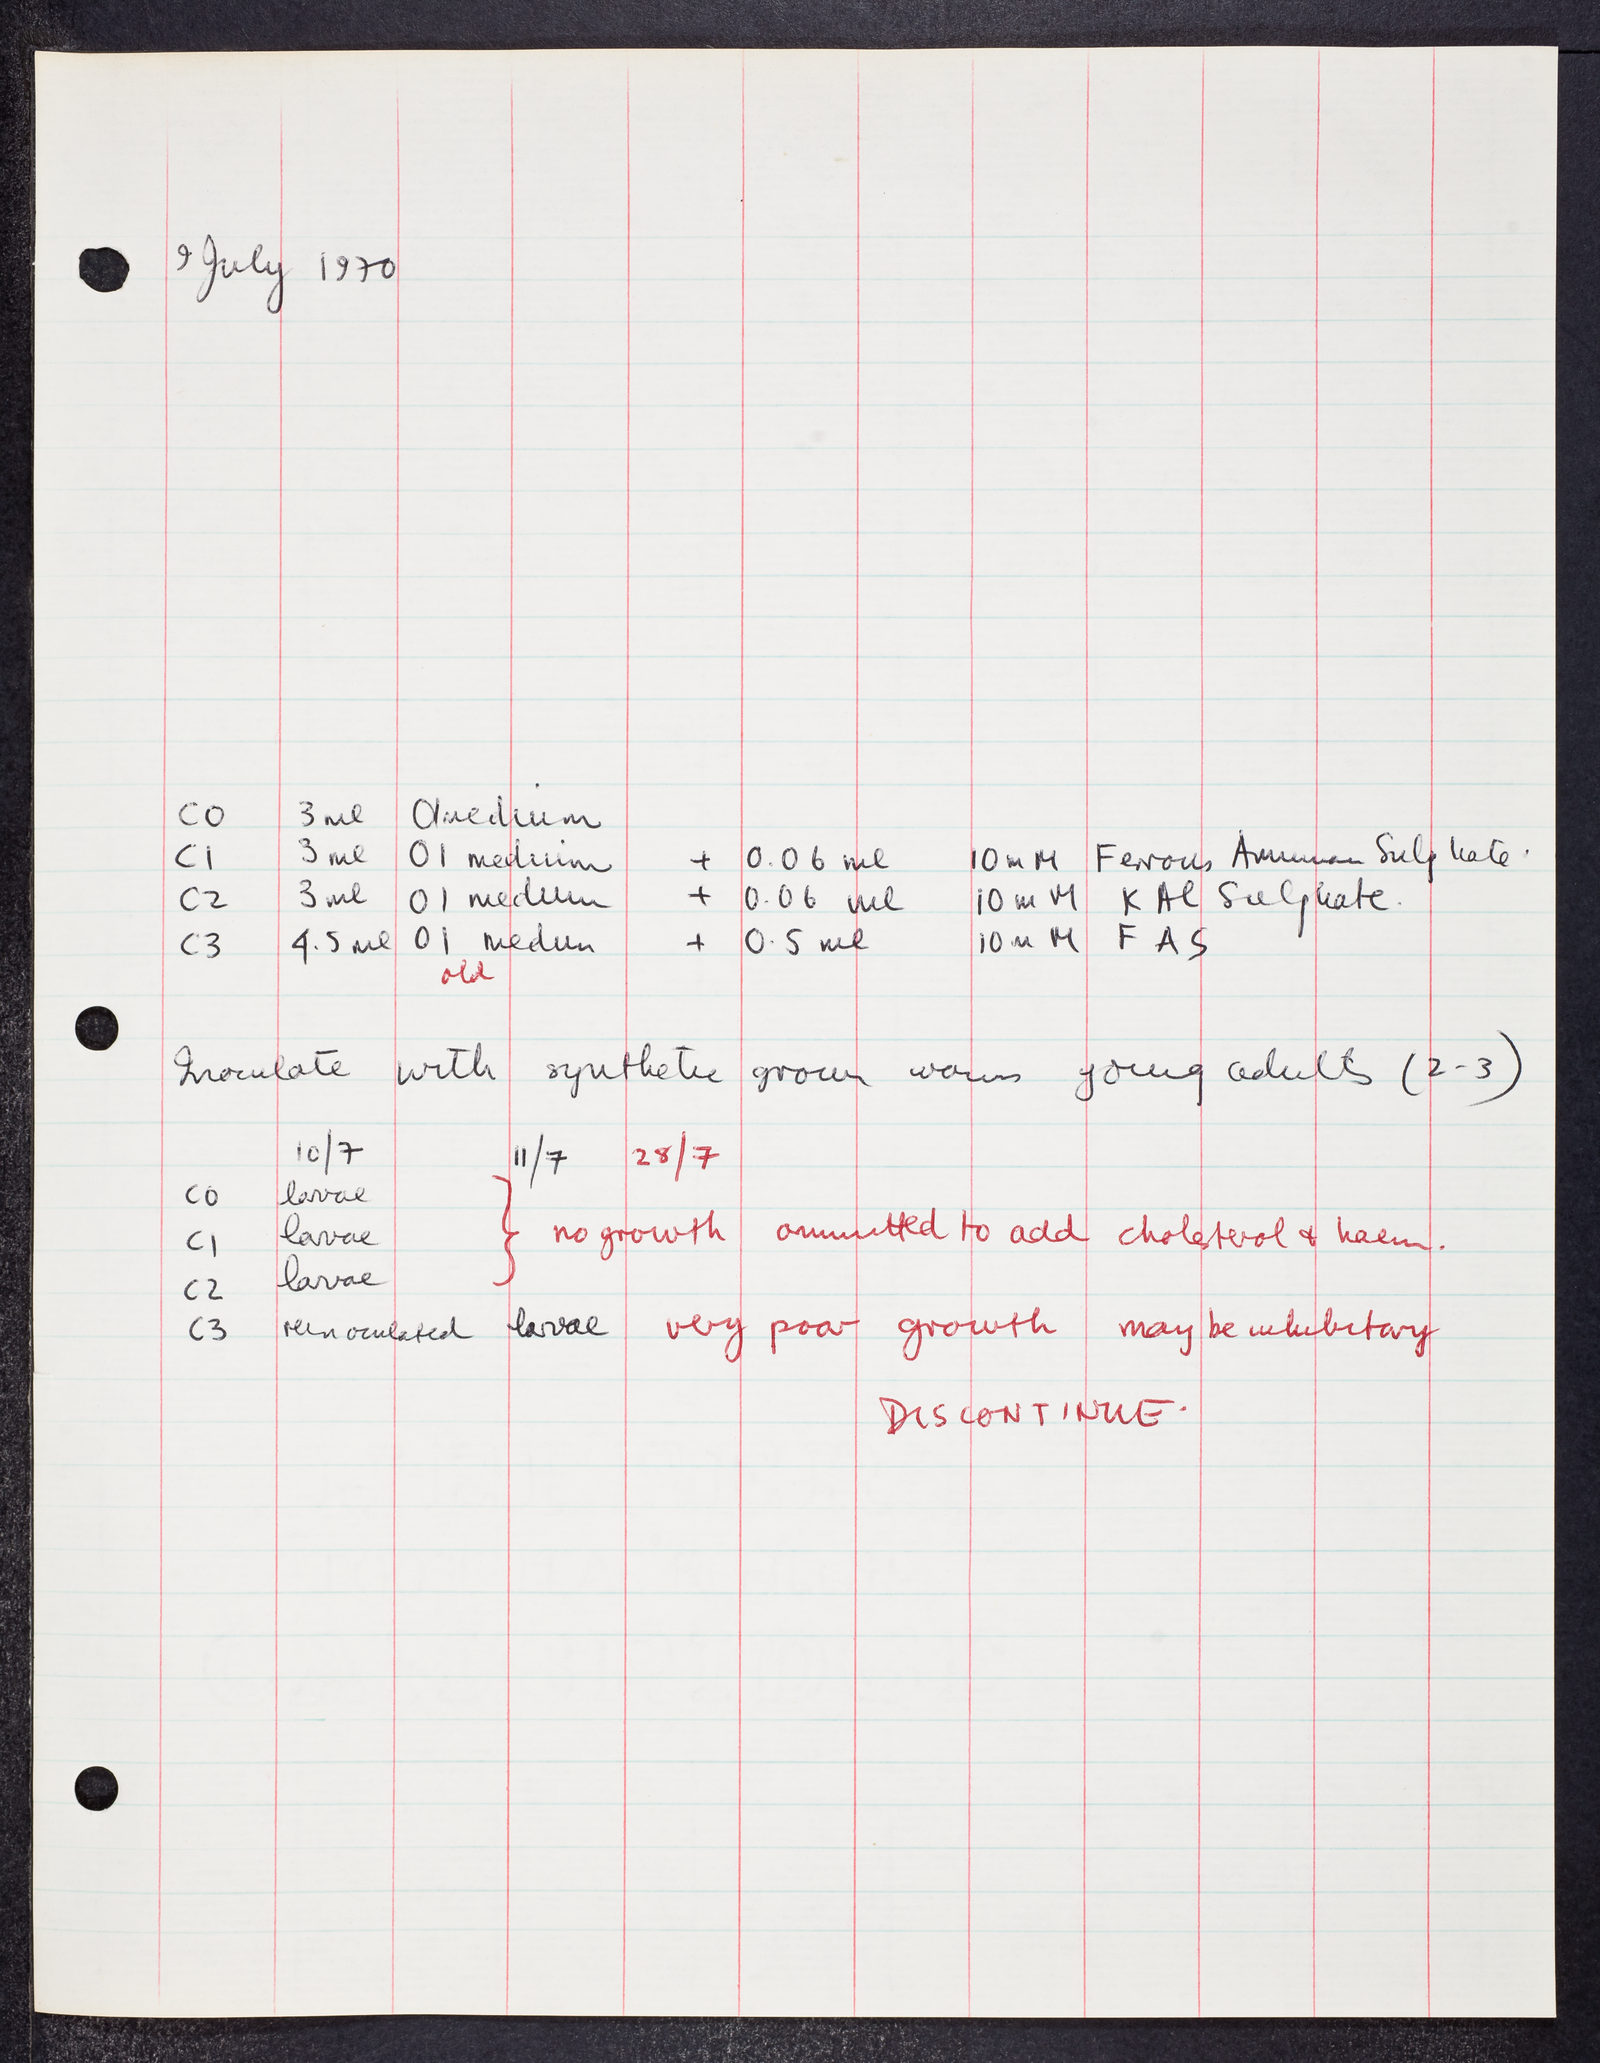 9 July 1970
C0 3 ml 01 medium
C1 3 ml 01 medium + 0.06 ml 10 mM Ferrous Ammonium Sulphate.
C2 3 ml 01 medium + 0.06 ml 10 mM K Al Sulphate.
C3 4.5 ml 01 medium + 0.5 ml 10 mM F A S
old
Inoculate with synthetic grown worms young adults (2-3)
10/7 11/7 28/7
C0 larvae
C1 larvae } no growth ommitted to add cholesterol & haem.
C2 larvae
C3 reinoculated larvae very poor growth may be inhibitory
DISCONTINUE.